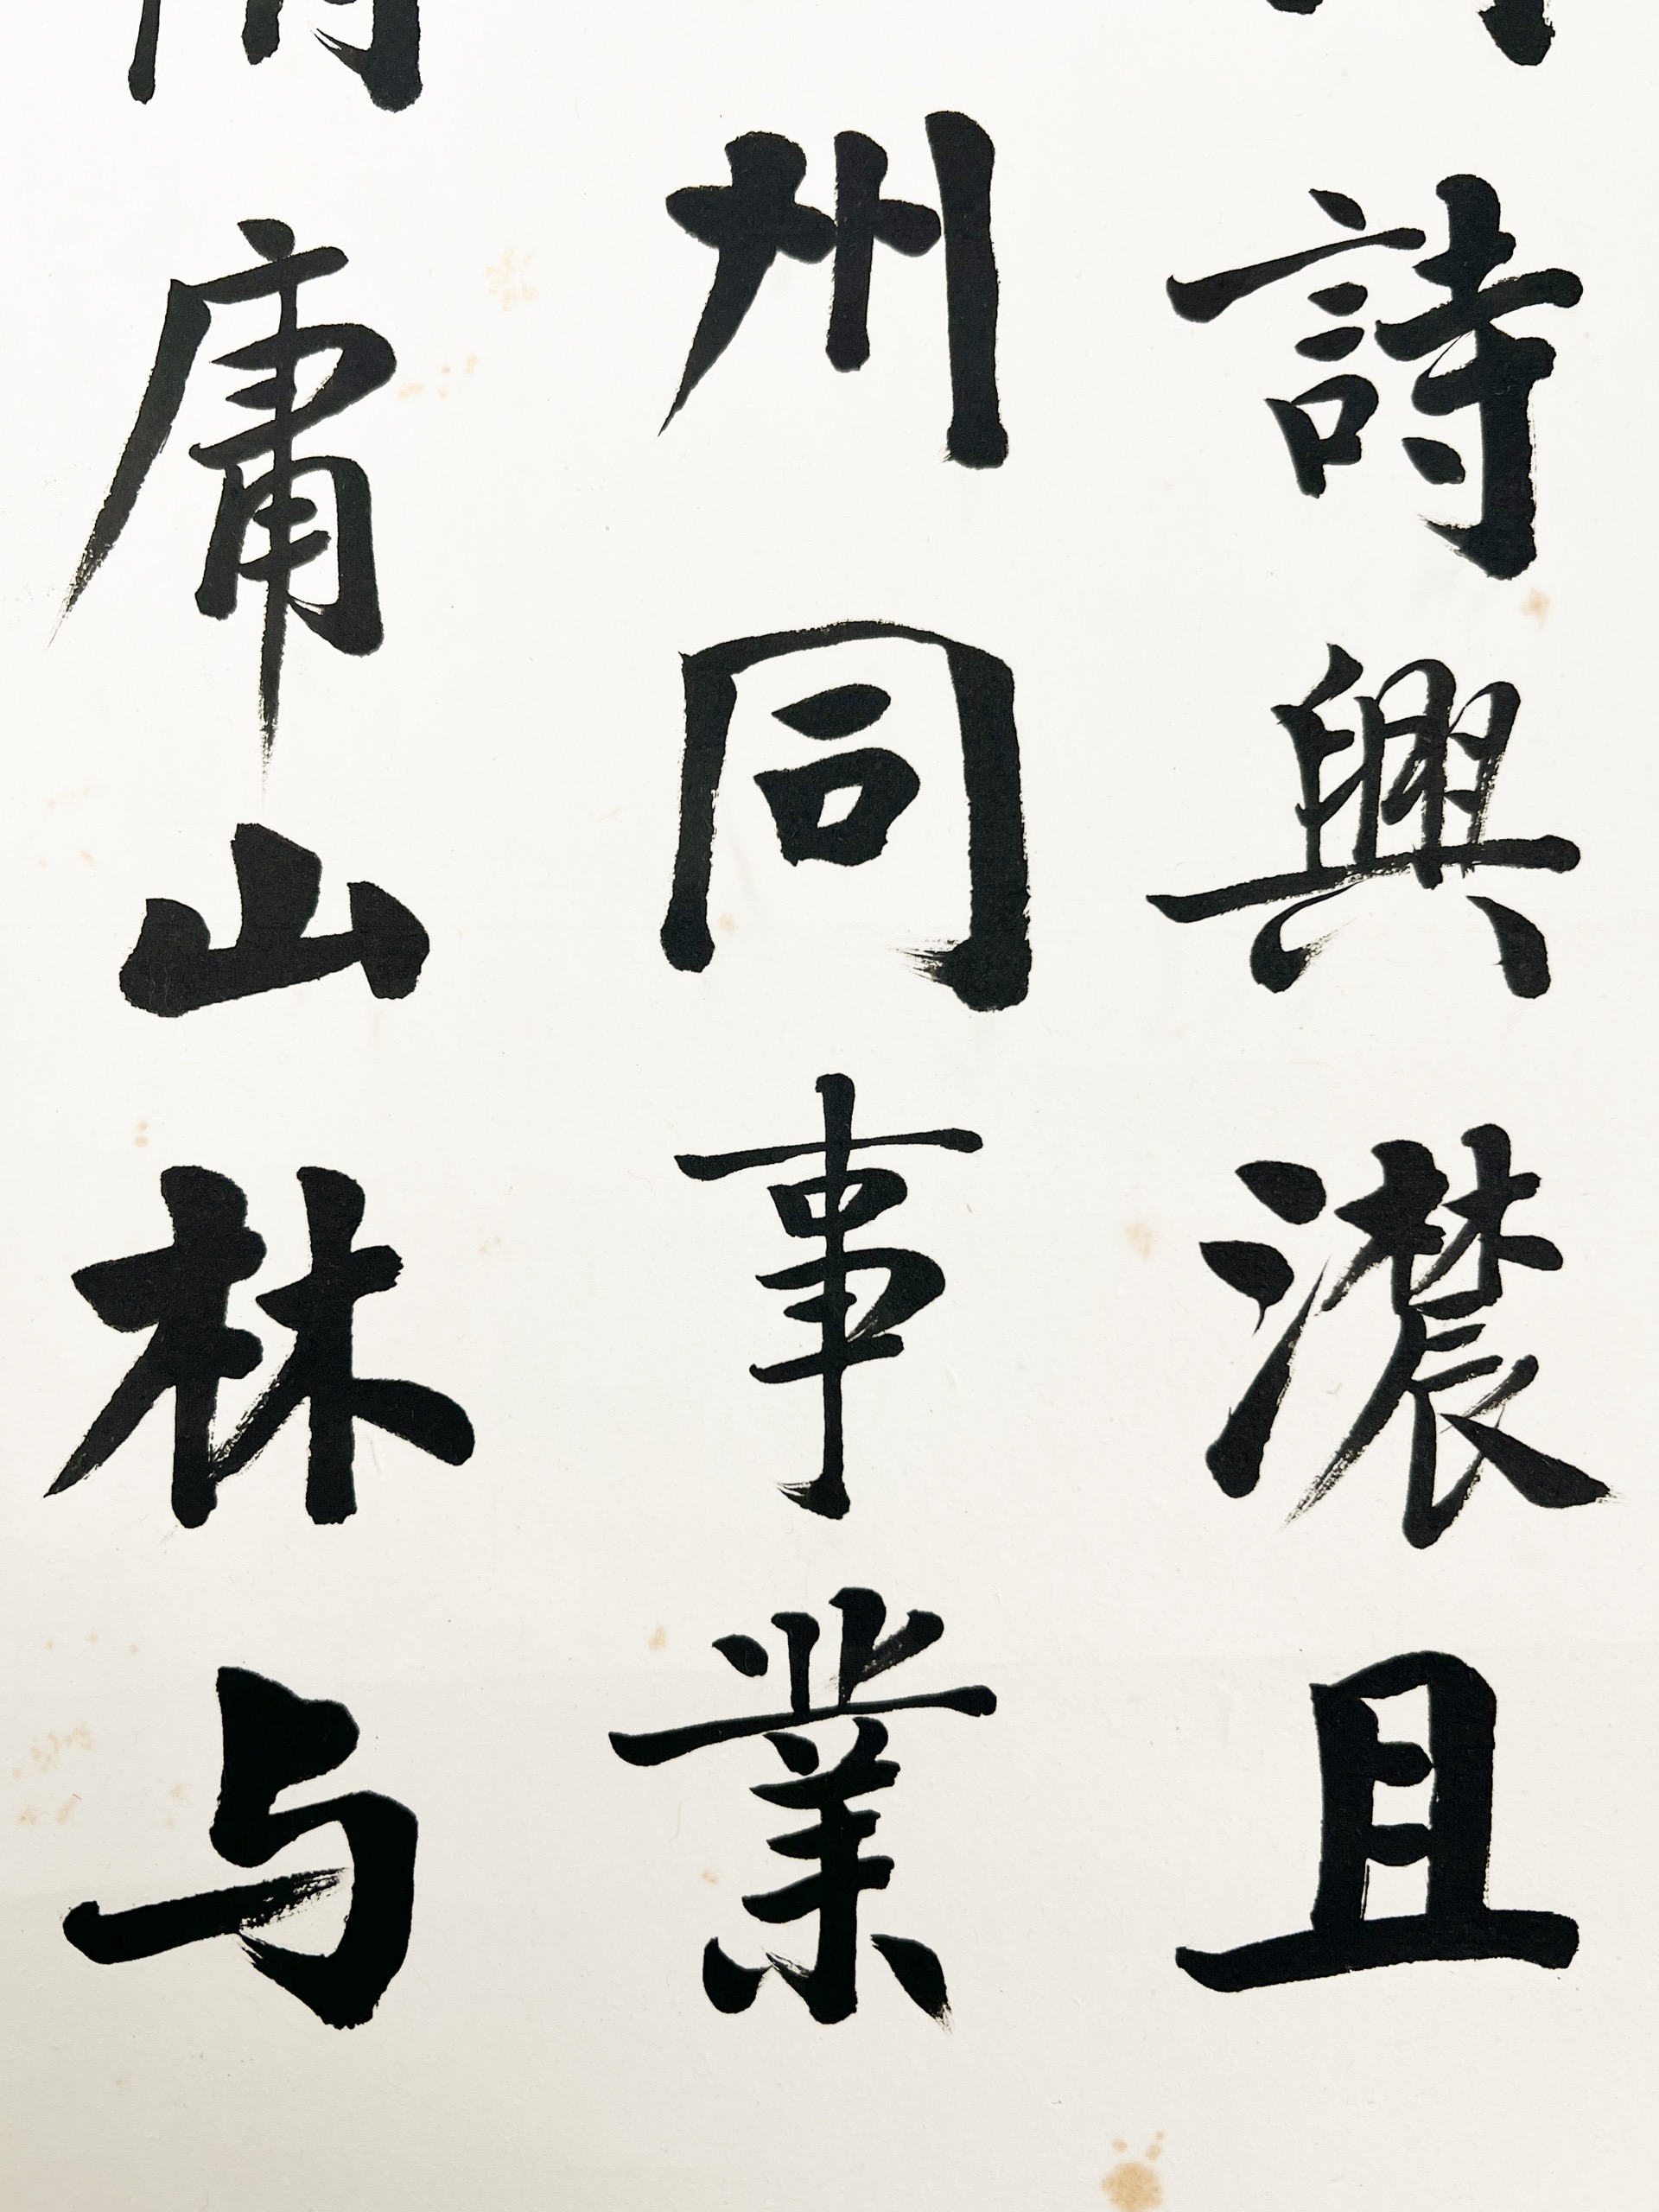 詩興濃且
州同事業
庸山林与